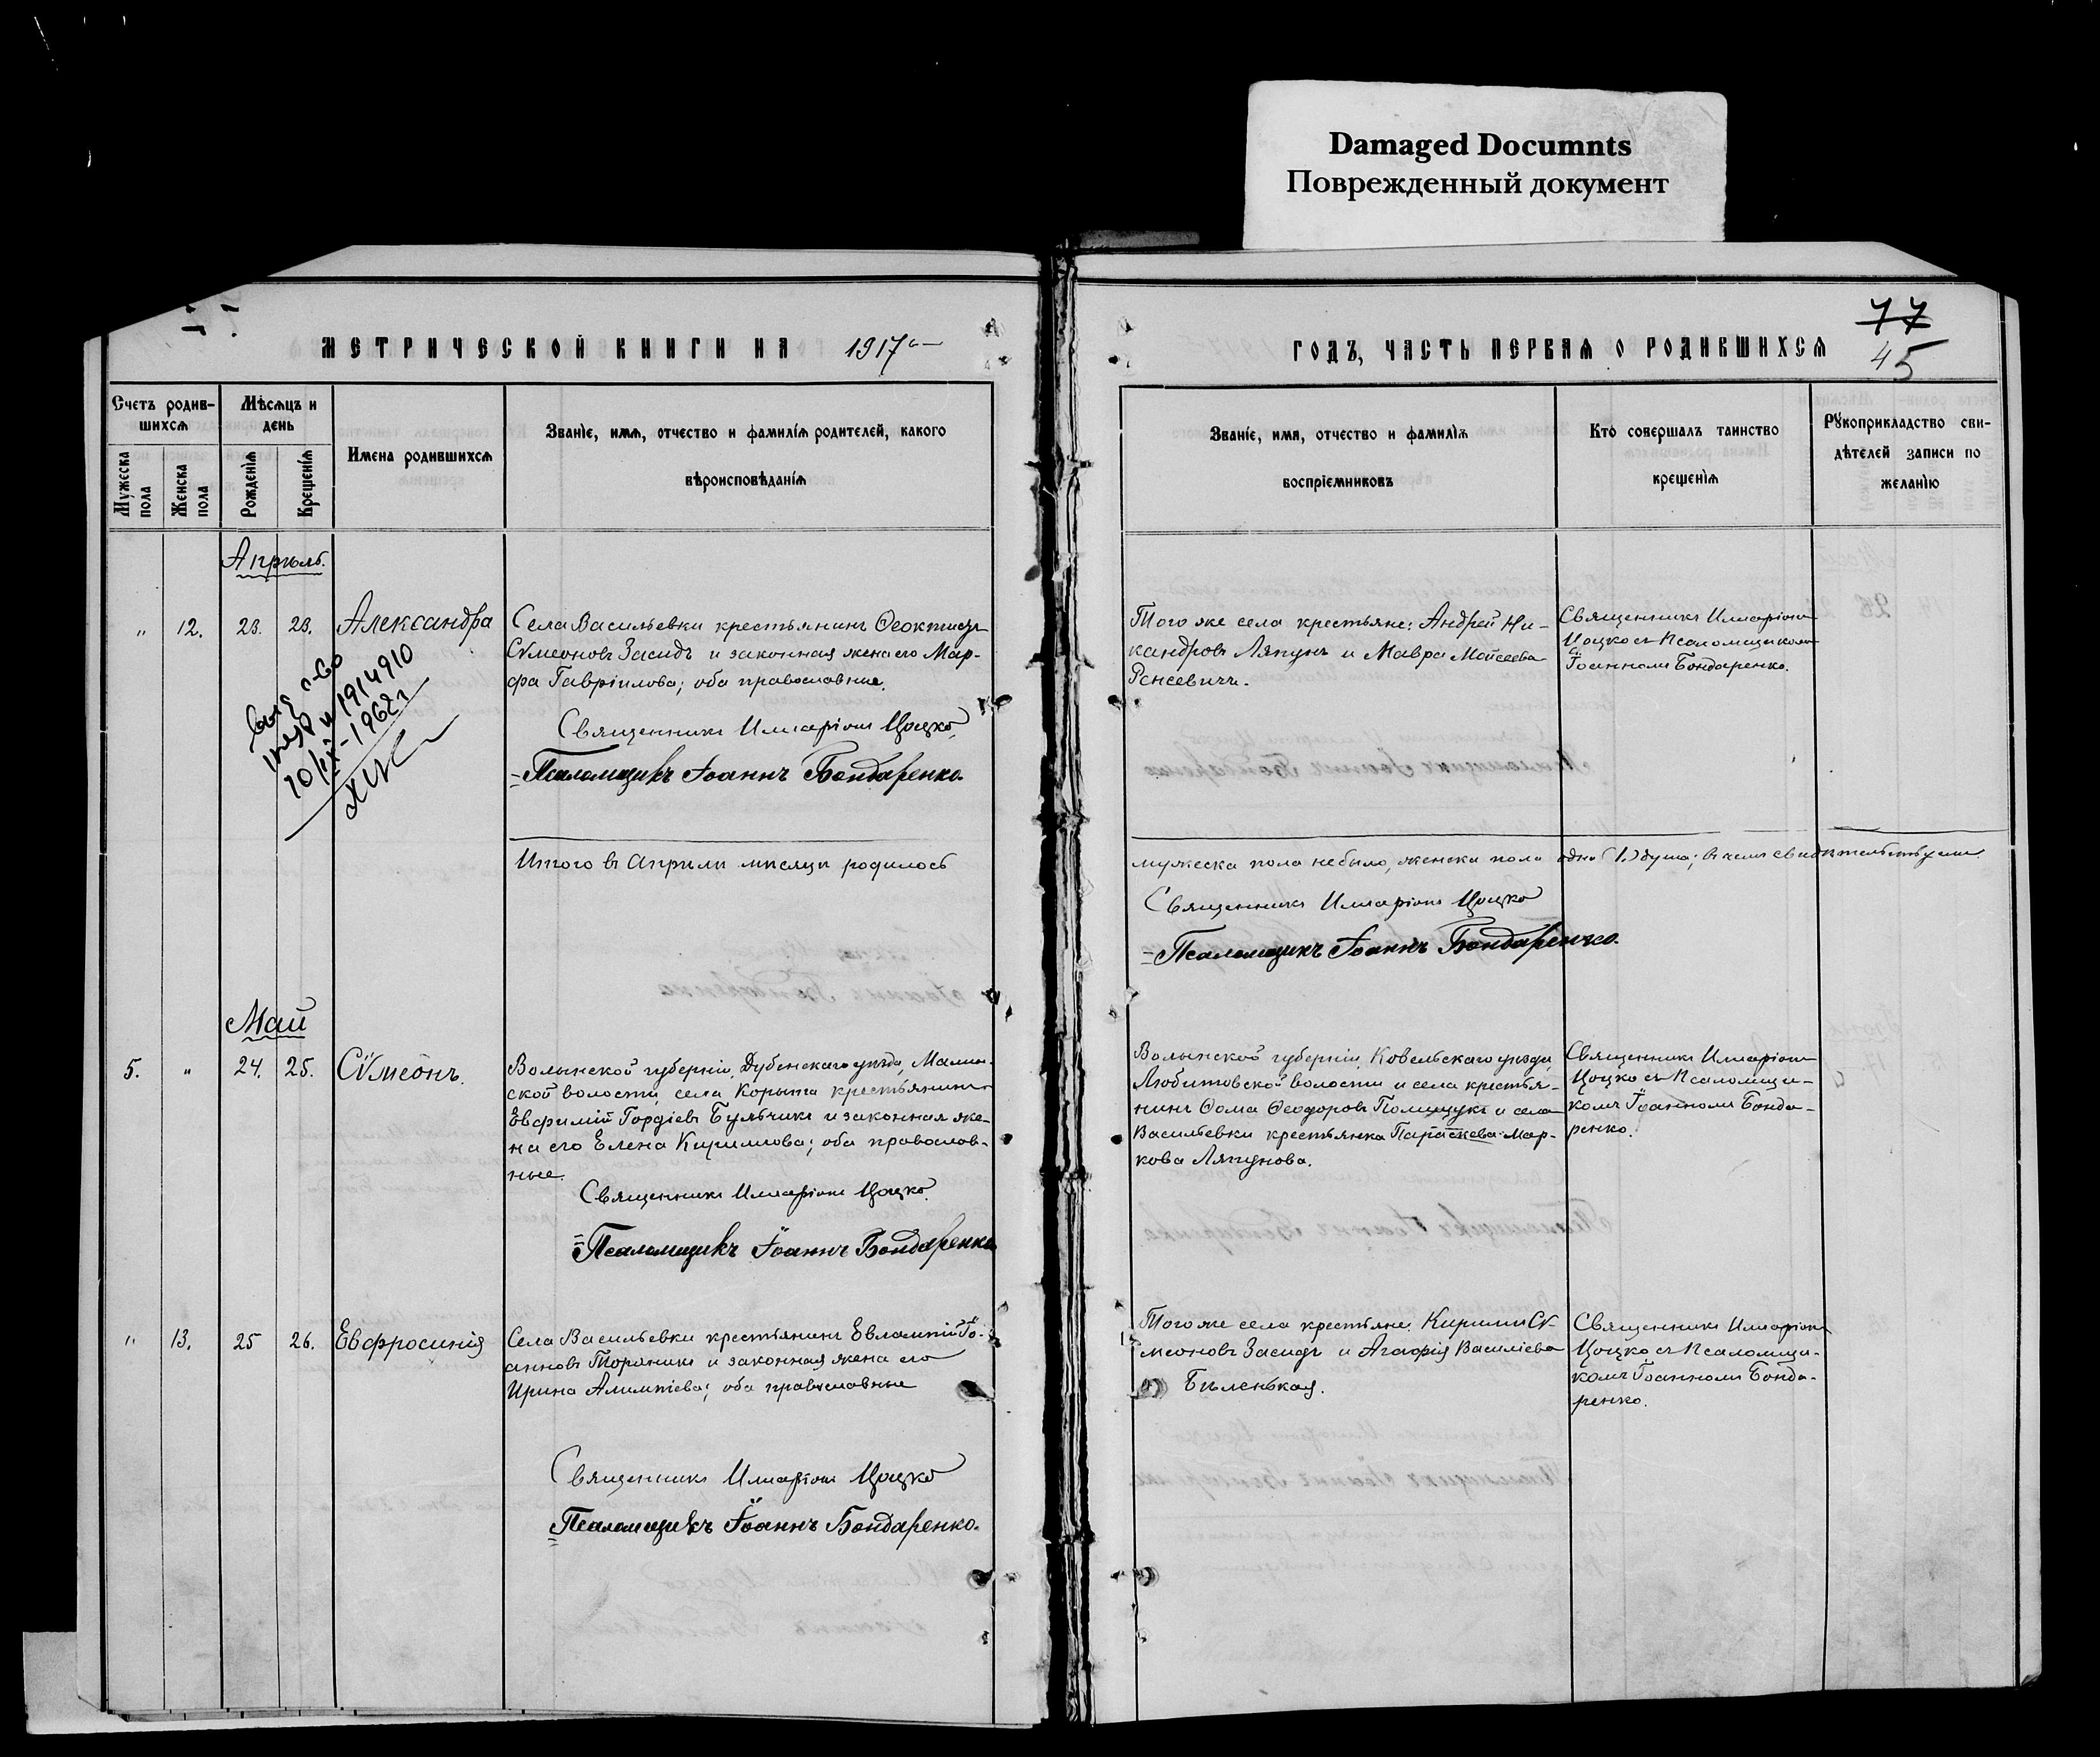 Damaged Documnts
Поврежденный документ
МЕТРИЧЕСКОЙ КНИГИ НА 1917
ГОДЪ, ЧАСТЬ ПЕРВАЯ О РОДИВШИХСЯ
77
45
Счетъ родив-
шихся
Мѣсяцъ и
день
Мужеска
пола
Женска
пола
Рожденія
Крещенія
Имена родившихся
Званіе, имя, отчество и фамилія родителей, какого
вѣроисповѣданія
Званіе, имя, отчество и фамилія
воспріемниковъ
Кто совершалъ таинство
крещенія
Рукоприкладство сви-
дѣтелей записи по
желанію
Апрѣль.
" 12. 23. 23. Александра
Села Васильевки крестьянинъ Ѳеоктистъ
Сѵмеоновъ Засидъ и законная жена его Мар-
фа Гавріилова; оба православные.
Священникъ Иларіонъ Цоцко
Псаломщикъ Іоаннъ Бондаренко
1914910
1962г
Того же села крестьяне: Андрей Ни-
кандровъ Ляпунъ и Мавра Моисеева
Ренсевичъ.
Священникъ Иларіонъ
Цоцко съ Псаломщикомъ
Іоанномъ Бондаренко.
Итого въ Апрѣлѣ мѣсяцѣ родилось
мужеска пола не было, женска пола одна (1.) душа; въ чемъ свидѣтельствуемъ
Священникъ Иларіонъ Цоцко
Псаломщикъ Іоаннъ Бондаренко.
Май
5. " 24. 25. Сѵмеонъ.
Волынской губерніи, Дубенскаго уѣзда, Малин-
ской волости, села Корыта крестьянинъ
Евфимій Гордіевъ Бульчикъ и законная же-
на его Елена Кирилова; оба православ-
ные.
Священникъ Иларіонъ Цоцко.
Псаломщикъ Іоаннъ Бондаренко
Волынской губерніи, Ковельскаго уѣзда,
Любитовской волости и села крестья-
нинъ Ѳома Ѳеодоровъ Полищукъ и села
Васильевки крестьянка Параскева Мар-
кова Ляпунова.
Священникъ Иларіонъ
Цоцко съ Псаломщи-
комъ Іоанномъ Бонда-
ренко.
" 13. 25 26. Евфросинія
Села Васильевки крестьянинъ Евлампій Іо-
анновъ Торяникъ и законная жена его
Ирина Алимпіева; оба православные
Священникъ Иларіонъ Цоцко
Псаломщикъ Іоаннъ Бондаренко.
Того же села крестьяне: Кирилъ Сѵ-
меоновъ Засидъ и Агафія Василіева
Бѣленькая.
Священникъ Иларіонъ
Цоцко съ Псаломщи-
комъ Іоанномъ Бонда-
ренко.